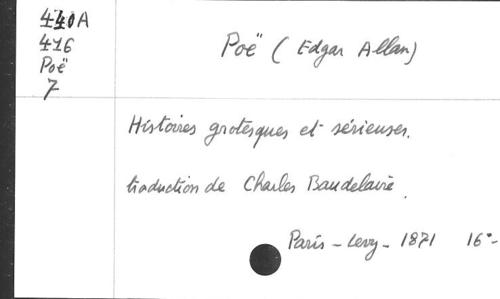 440A
416
Poë
7
Poë (Edgar Allan)
Histoires grotesques et sérieuses.
traduction de Charles Baudelaire.
Paris - Levy - 1871 16°-